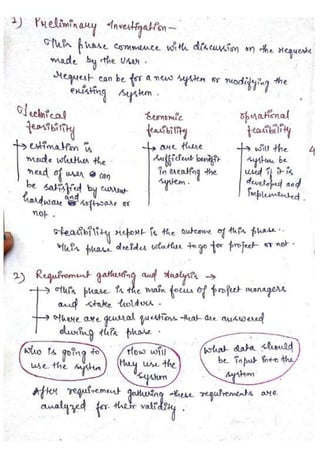 1) Preliminary Investigation -
This phase commence with discussion on the requests
made by the User.
request can be for a new system or modifying the
existing system.
Technical feasibility
→ estimation is
made whether the
need of user can
be satisfied by current
hardware software or
not.
Economic feasibility
→ are there
sufficient benefit
in creating the
system.
Operational feasibility
→ will the
system be
used if it is
developed and
implemented.
feasibility report is the outcome of this phase.
This phase decides whether to go for project or not.
2) Requirement gathering and Analysis →
→ This phase is the main focus of project managers
and stake holders.
→ There are general questions that are answered
during this phase.
Who is going to
use the system
How will
they use the
system
What data should
be input into the
system
After requirement gathering these requirements are
analyzed for their validity.